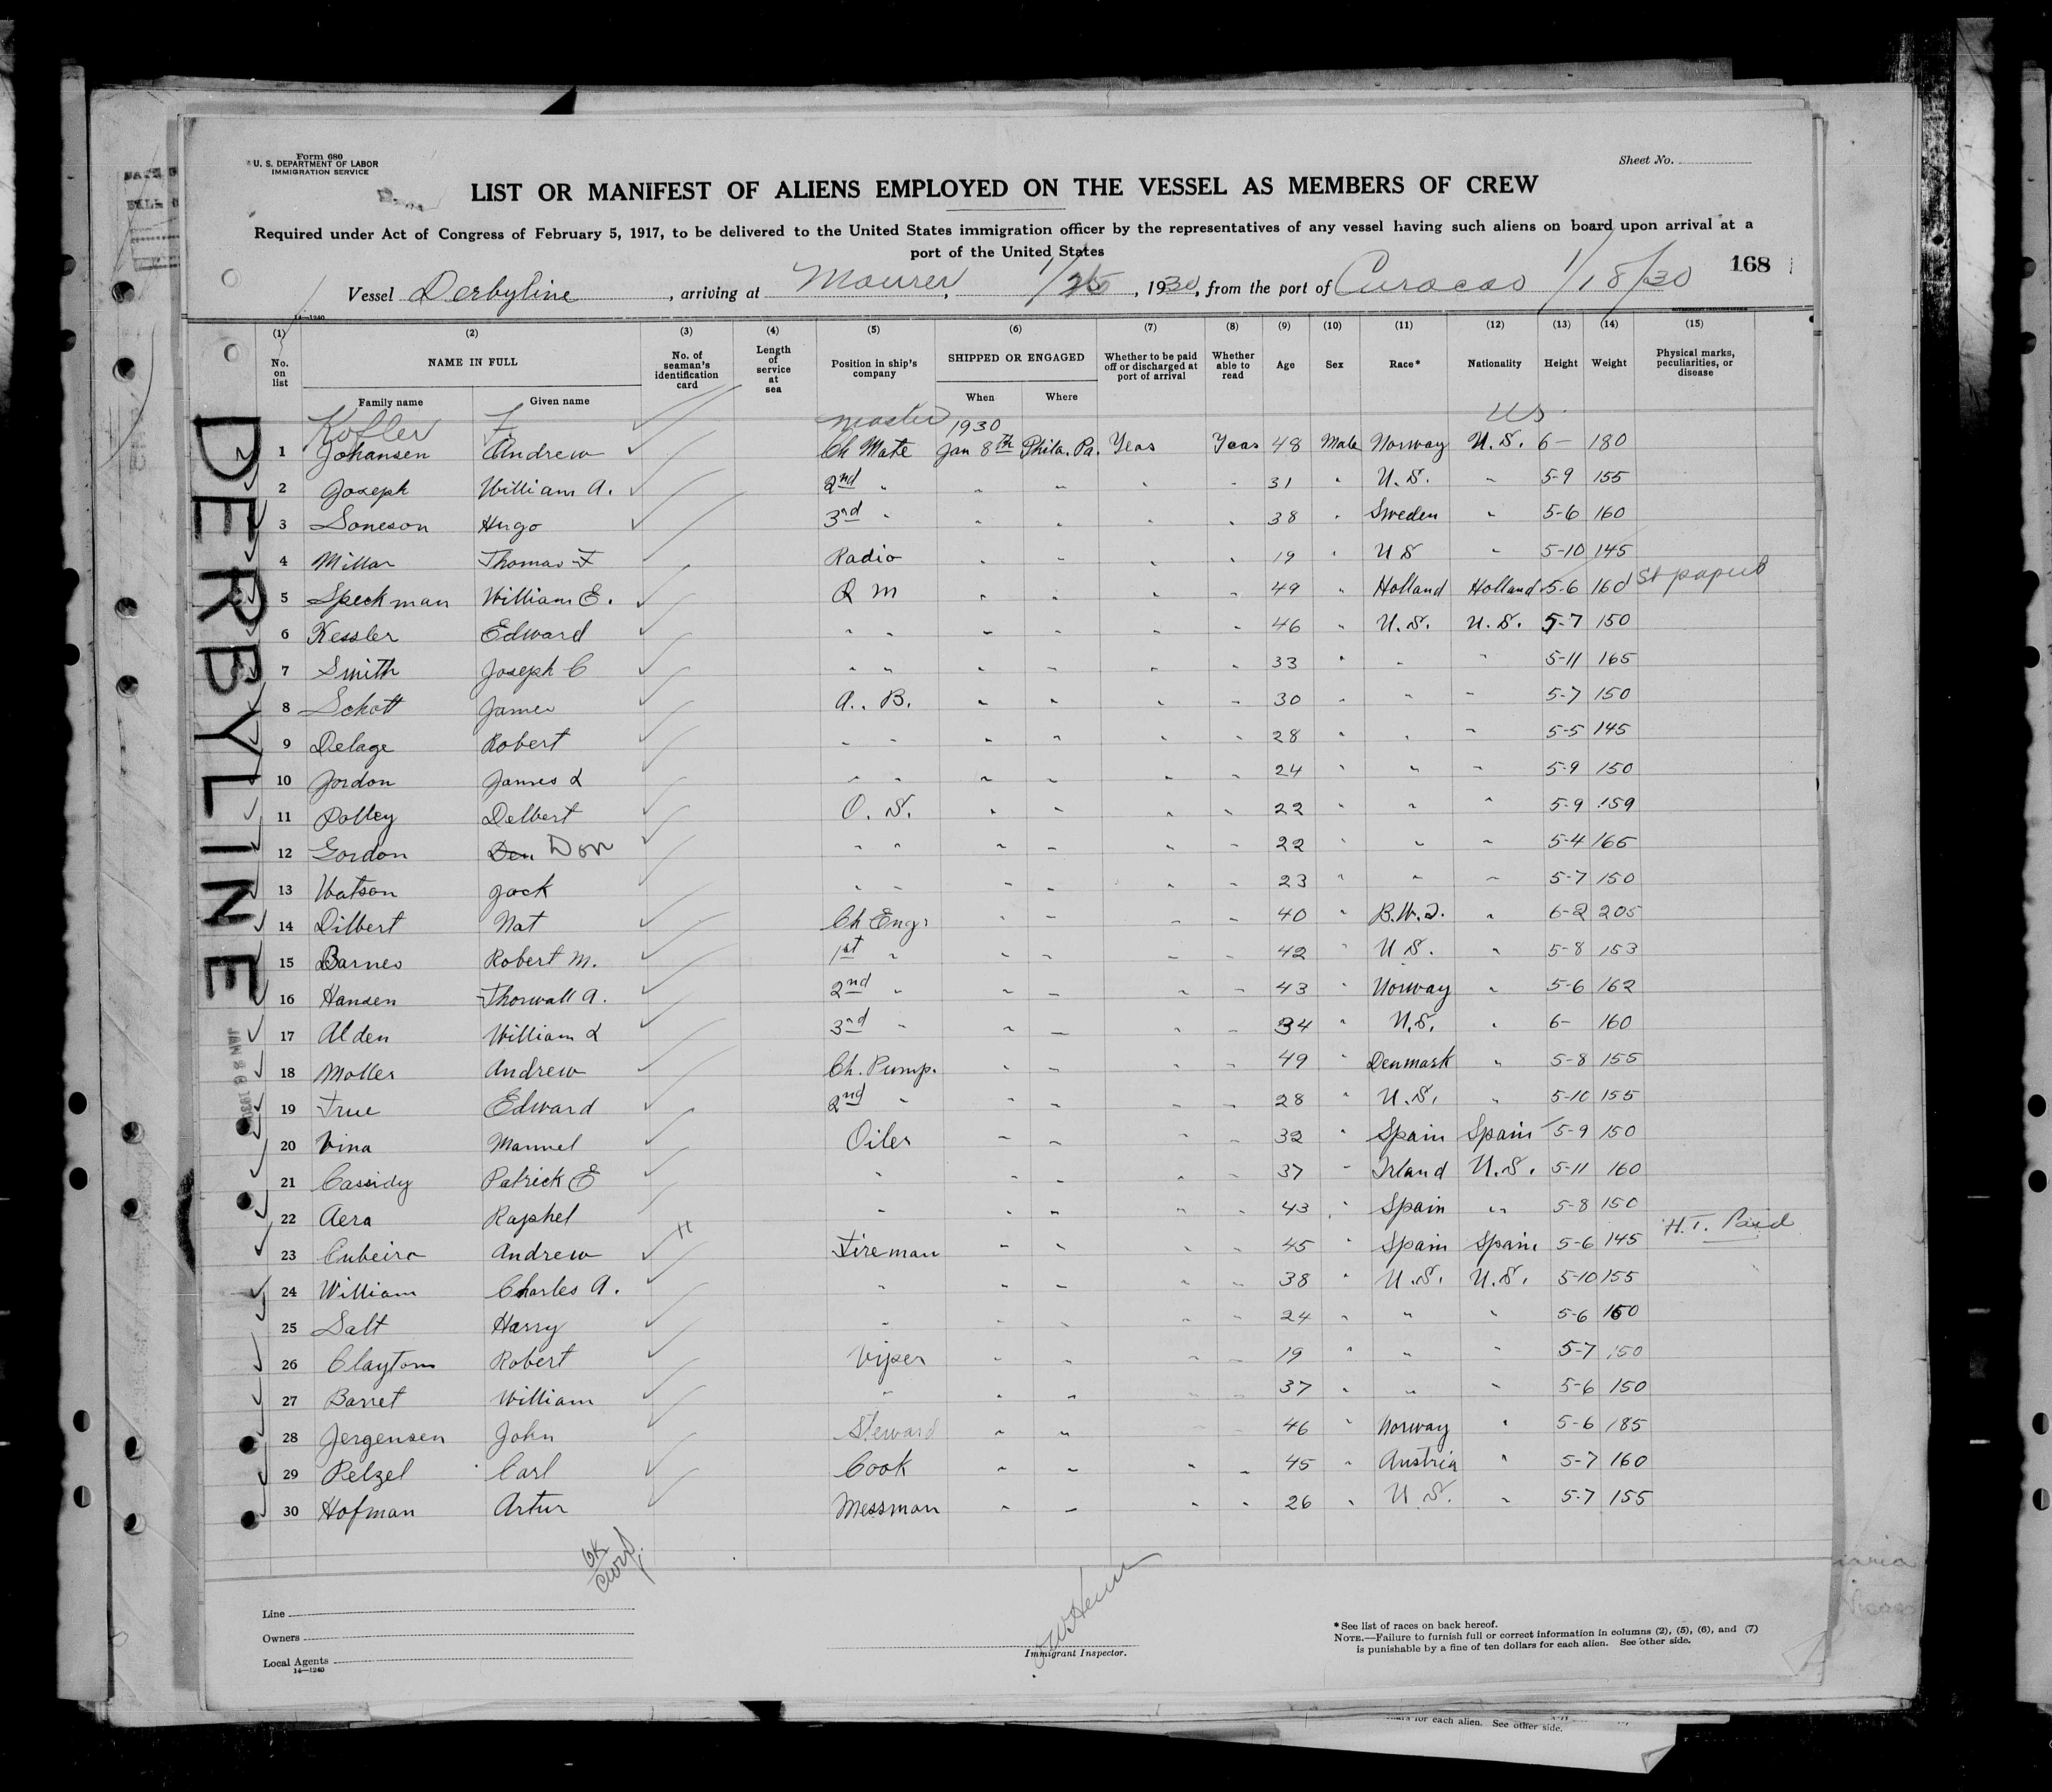 Form 680
U. S. DEPARTMENT OF LABOR
IMMIGRATION SERVICE
Sheet No.
LIST OR MANIFEST OF ALIENS EMPLOYED ON THE VESSEL AS MEMBERS OF CREW
Required under Act of Congress of February 5, 1917, to be delivered to the United States immigration officer by the representatives of any vessel having such aliens on board upon arrival at a
port of the United States
168
Vessel Derbyline, arriving at Maurer, 1/25, 1930, from the port of Curacao 1/18/30
14—1240
(1) (2) (3) (4) (5) (6) (7) (8) (9) (10) (11) (12) (13) (14) (15)
No. on list NAME IN FULL No. of seaman's identification card Length of service at sea Position in ship's company SHIPPED OR ENGAGED Whether to be paid off or discharged at port of arrival Whether able to read Age Sex Race* Nationality Height Weight Physical marks, peculiarities, or disease
Family name Given name When Where
Kofler F master US
1930
1 Johansen Andrew Ch Mate Jan 8th Phila. Pa. Yeas Yeas 48 Male Norway U.S. 6— 180
2 Joseph William A. 2nd " " " " " 31 " U.S. " 5-9 155
3 Soneson Hugo 3rd " " " " " 38 " Sweden " 5-6 160
4 Millar Thomas F Radio " " " " 19 " U S " 5-10 145
5 Speckman William E. Q M " " " " 49 " Holland Holland 5-6 160 St papers
6 Kessler Edward " " " " " " 46 " U.S. U.S. 5-7 150
7 Smith Joseph C " " " " " " 33 " " " 5-11 165
8 Schott James A. B. " " " " 30 " " " 5-7 150
9 Delage Robert " " " " " " 28 " " " 5-5 145
10 Jordon James L " " " " " " 24 " " " 5-9 150
11 Polley Delbert O. S. " " " " 22 " " " 5-9 159
12 Gordon Den Don " " " " " " 22 " " " 5-4 165
13 Watson Jack " " " " " " 23 " " " 5-7 150
14 Dilbert Nat Ch Engr " " " " 40 " B.W.I. " 6-2 205
15 Barnes Robert M. 1st " " " " " 42 " U S. " 5-8 153
16 Hansen Thorwall A. 2nd " " " " " 43 " Norway " 5-6 162
17 Alden William L 3rd " " " " " 34 " U.S. " 6- 160
18 Moller Andrew Ch. Pump. " " " " 49 " Denmark " 5-8 155
19 True Edward 2nd " " " " " 28 " U.S. " 5-10 155
20 Vina Manuel Oiler " " " " 32 " Spain Spain 5-9 150
21 Cassidy Patrick E " " " " " 37 " Irland U.S. 5-11 160
22 Aera Raphel " " " " " 43 " Spain " 5-8 150
23 Cubeiro Andrew H Fireman " " " " 45 " Spain Spain 5-6 145 H.T. Paid
24 William Charles A. " " " " " 38 " U.S. U.S. 5-10 155
25 Salt Harry " " " " " 24 " " " 5-6 160
26 Claytom Robert Viper " " " " 19 " " " 5-7 150
27 Barret William " " " " " 37 " " " 5-6 150
28 Jergensen John Steward " " " 46 " Norway " 5-6 185
29 Pelzel Carl Cook " " " " 45 " Austria " 5-7 160
30 Hofman Artur Messman " " " " 26 " U.S. " 5-7 155
DERBYLINE
JAN 28 1930
OK
Line
Owners
Local Agents
14—1240
Immigrant Inspector.
*See list of races on back hereof.
NOTE.—Failure to furnish full or correct information in columns (2), (5), (6), and (7)
is punishable by a fine of ten dollars for each alien. See other side.
for each alien. See other side.